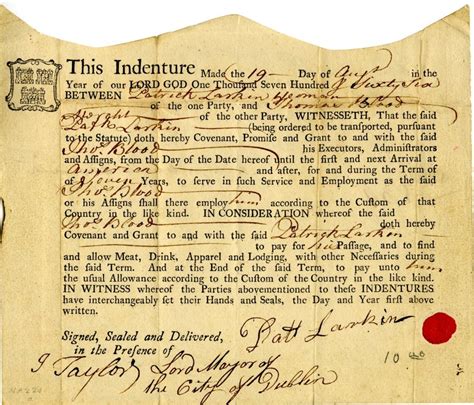 This Indenture Made the 19 Day of Augst in the
Year of our LORD GOD One Thousand Seven Hundred & Sixty Six
BETWEEN Patrick Larkin
of the one Party, and Thomas Blood
of the other Party, WITNESSETH, That the said
Patk Larkin (being ordered to be transported, pursuant
to the Statute) doth hereby Covenant, Promise and Grant to and with the said
Thos. Blood his Executors, Administrators
and Assigns, from the Day of the Date hereof until the first and next Arrival at
America and after, for and during the Term of
Seven Years, to serve in such Service and Employment as the said
Thos. Blood
or his Assigns shall there employ him according to the Custom of that
Country in the like kind. IN CONSIDERATION whereof the said
Thos. Blood doth hereby
Covenant and Grant to and with the said Patrick Larkin
to pay for his Passage, and to find
and allow Meat, Drink, Apparel and Lodging, with other Necessaries during
the said Term. And at the End of the said Term, to pay unto him
the usual Allowance according to the Custom of the Country in the like kind.
IN WITNESS whereof the Parties abovementioned to these INDENTURES
have interchangeably set their Hands and Seals, the Day and Year first above
written.
Signed, Sealed and Delivered,
in the Presence of
Patt Larkin
J Taylor Lord Mayor of
the City of Dublin
10